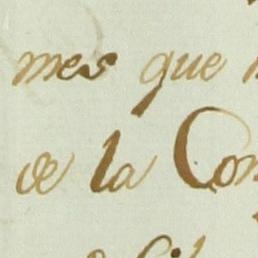 mes que
de la Con